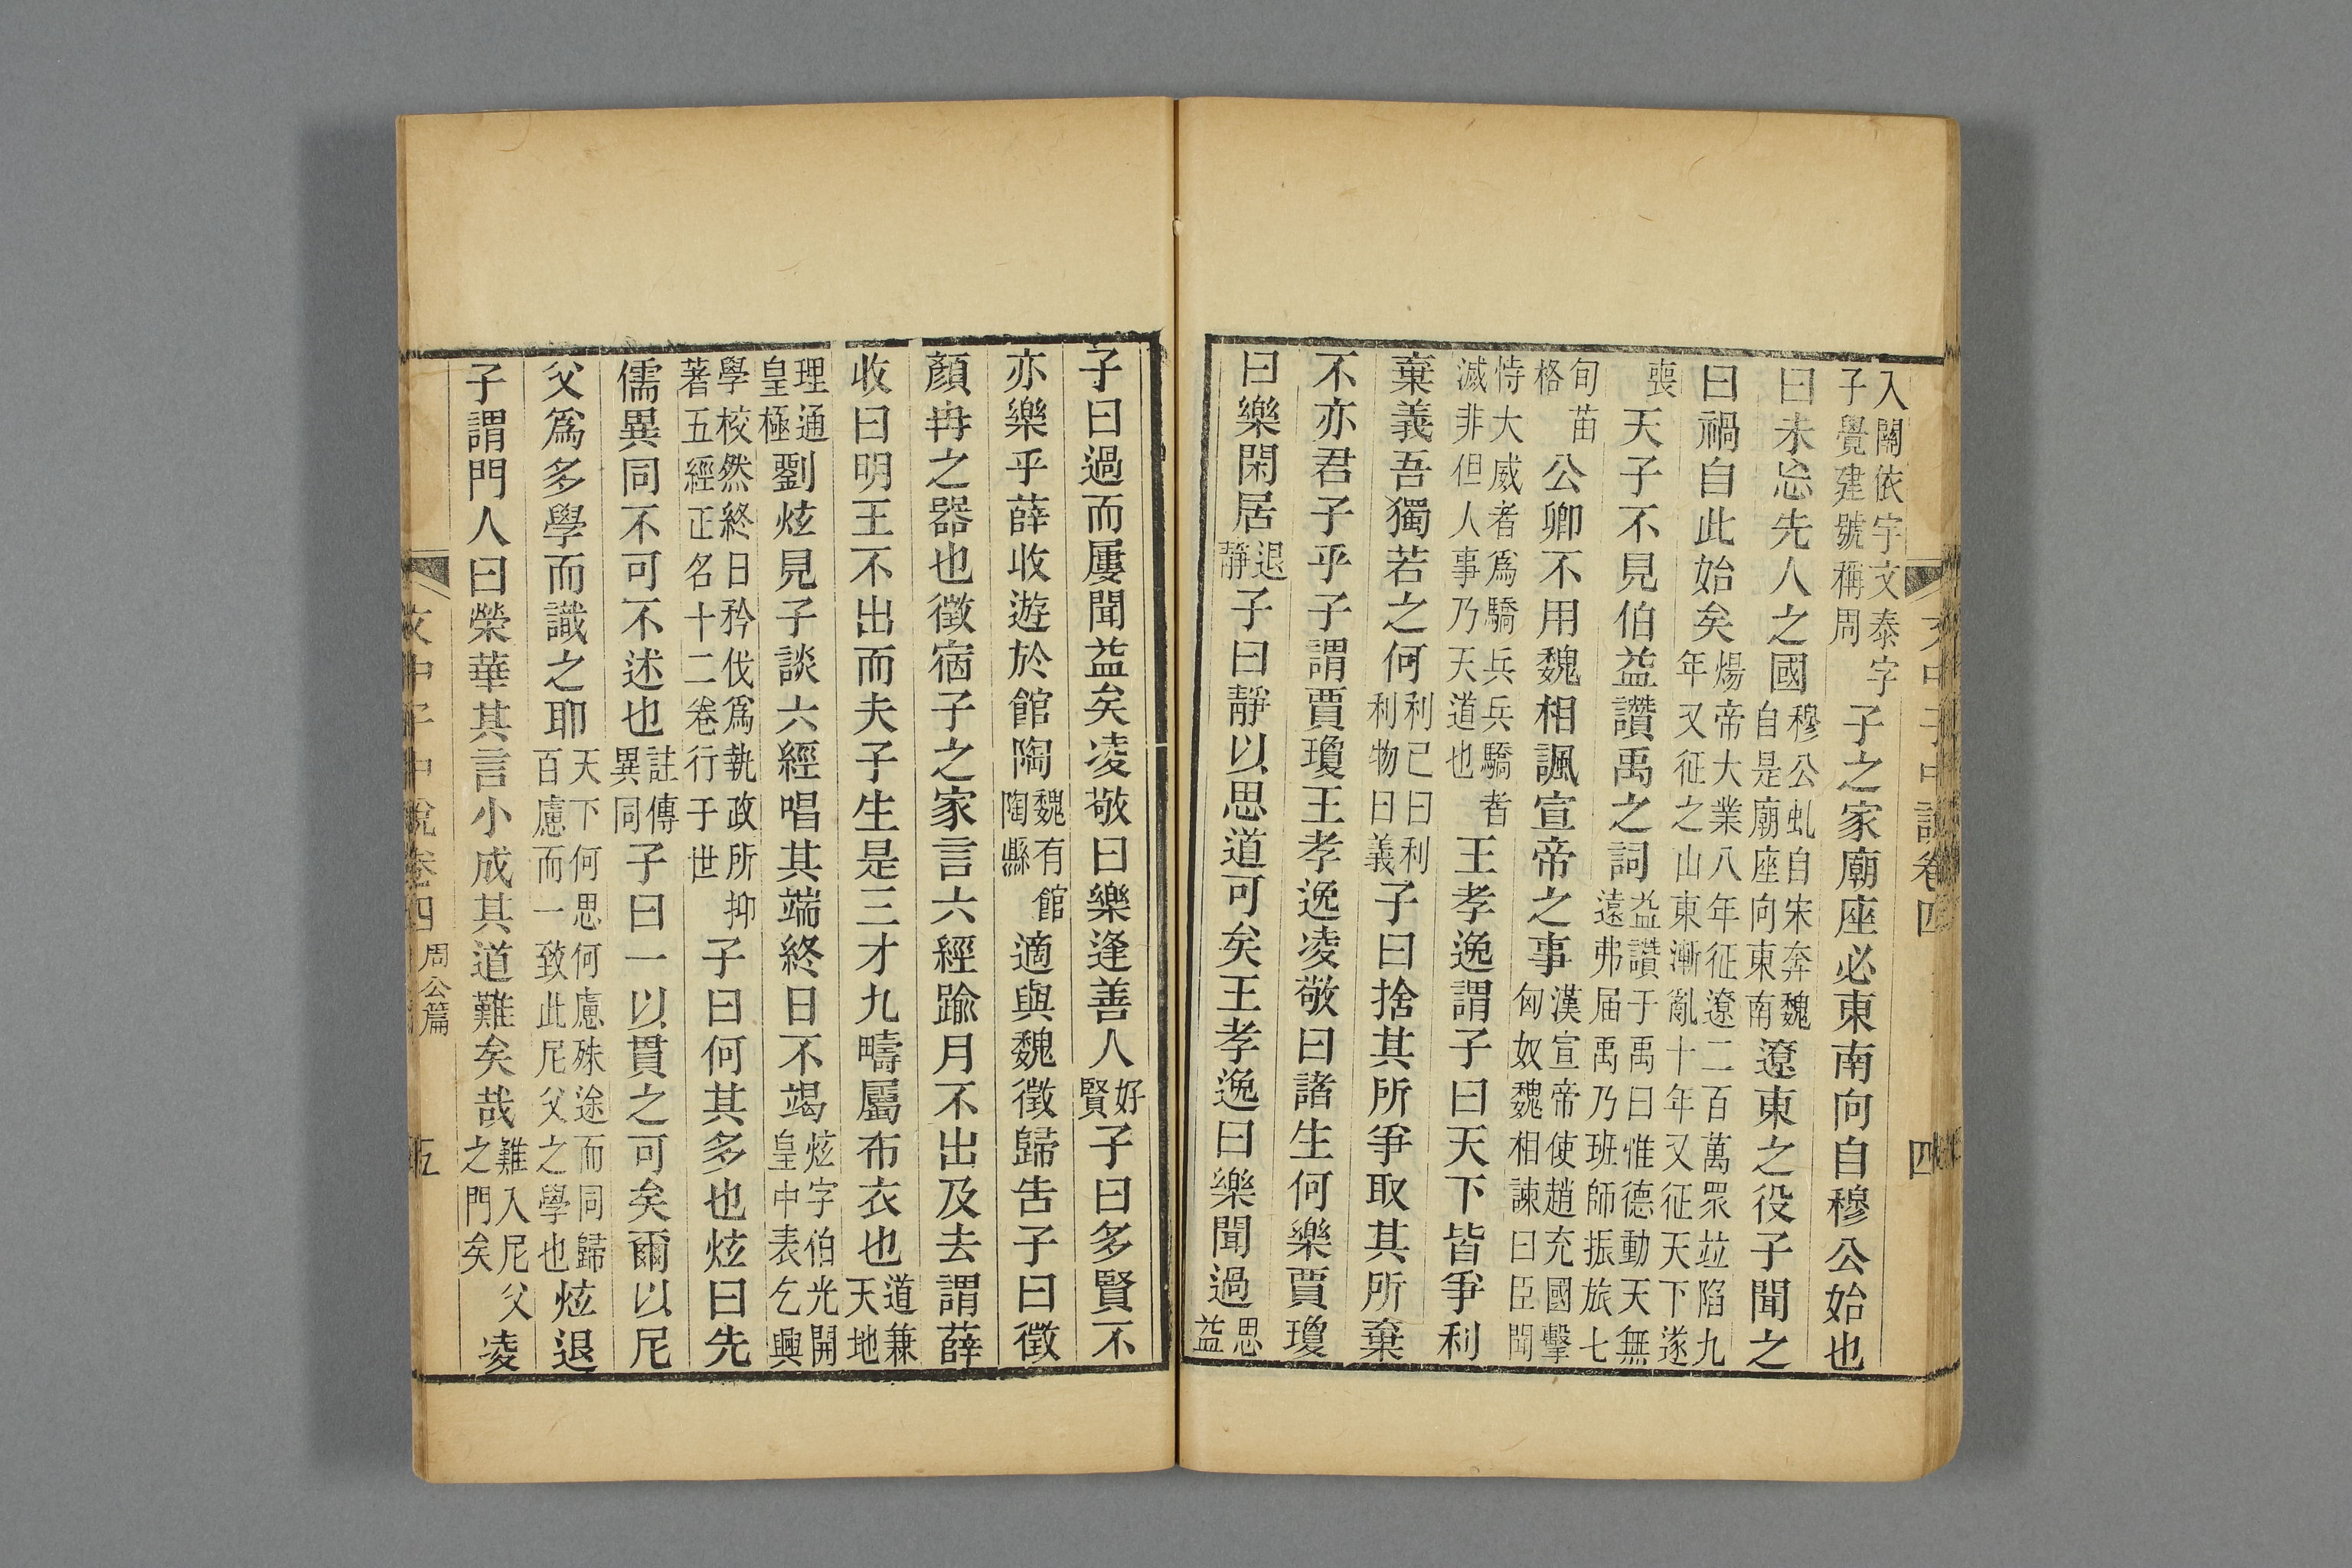 文中子中說卷四 四
入關依宇文泰字子覺建號稱周子之家廟座必東南向自穆公始也
曰未忘先人之國穆公虬自宋奔魏自是廟座向東南遼東之役子聞之
曰禍自此始矣煬帝大業八年征遼二百萬眾竝陷九年又征之山東漸亂十年又征天下遂
喪天子不見伯益讚禹之詞益讚于禹曰惟德動天無遠弗届禹乃班師振旅七
旬苗格公卿不用魏相諷宣帝之事漢宣帝使趙充國擊匈奴魏相諫曰臣聞
恃大威者爲驕兵兵驕者滅非但人事乃天道也王孝逸謂子曰天下皆爭利
棄義吾獨若之何利己曰利利物曰義子曰捨其所爭取其所棄
不亦君子乎子謂賈瓊王孝逸凌敬曰諸生何樂賈瓊
曰樂閑居退靜子曰靜以思道可矣王孝逸曰樂聞過思益
子曰過而屢聞益矣凌敬曰樂逢善人好賢子曰多賢不
亦樂乎薛收遊於館陶魏有館陶縣適與魏徵歸告子曰徵
顏冉之器也徵宿子之家言六經踰月不出及去謂薛
收曰明王不出而夫子生是三才九疇屬布衣也道兼天地
理通皇極劉炫見子談六經唱其端終日不竭炫字伯光開皇中表乞興
學校然終日矜伐爲執政所抑著五經正名十二卷行于世子曰何其多也炫曰先
儒異同不可不述也註傳異同子曰一以貫之可矣爾以尼
父爲多學而識之耶天下何思何慮殊途而同歸百慮而一致此尼父之學也炫退
子謂門人曰榮華其言小成其道難矣哉難入尼父之門矣凌
文中子中說卷四 周公篇 五